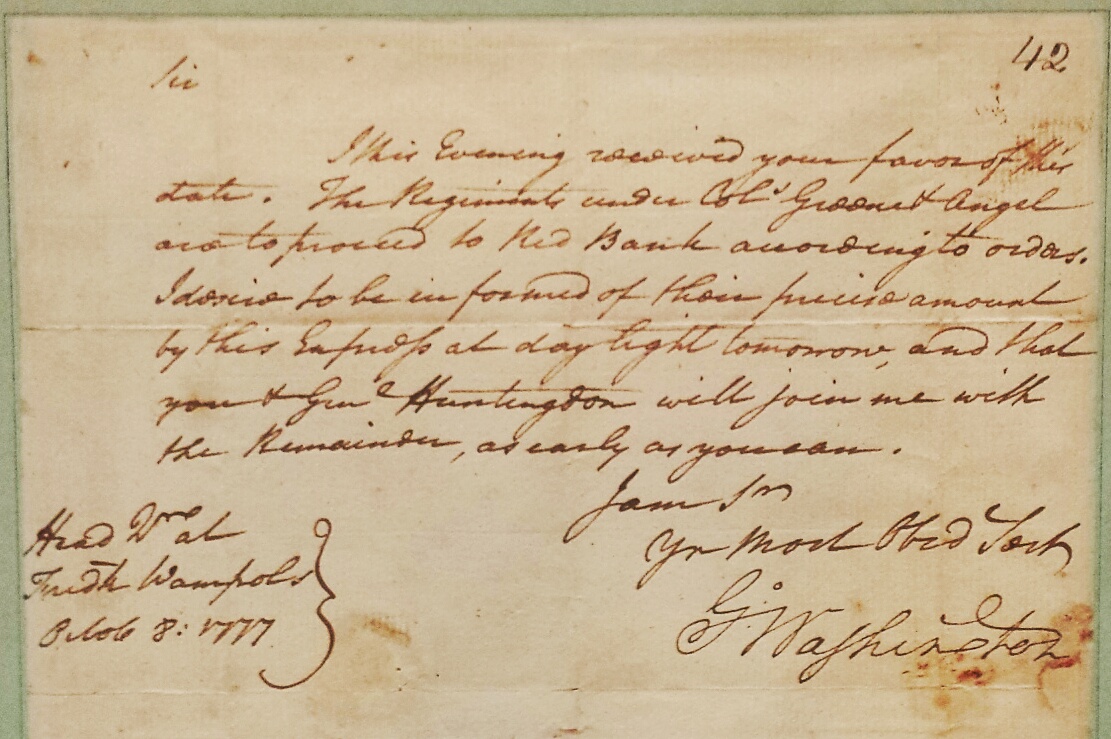 42
Sir
I this Evening received your favor of this
date. The Regiments under Cols Greene & Angel
are to proceed to Red Bank according to orders.
I desire to be informed of their precise amount
by this Express at day light tomorrow, and that
you & Genl Huntingdon will join me with
the Remainder, as early as you can.
I am Sr
Yr Most Obed Servt
G: Washington
Head Qrs at
Fredk Wampols
Octob 8: 1777